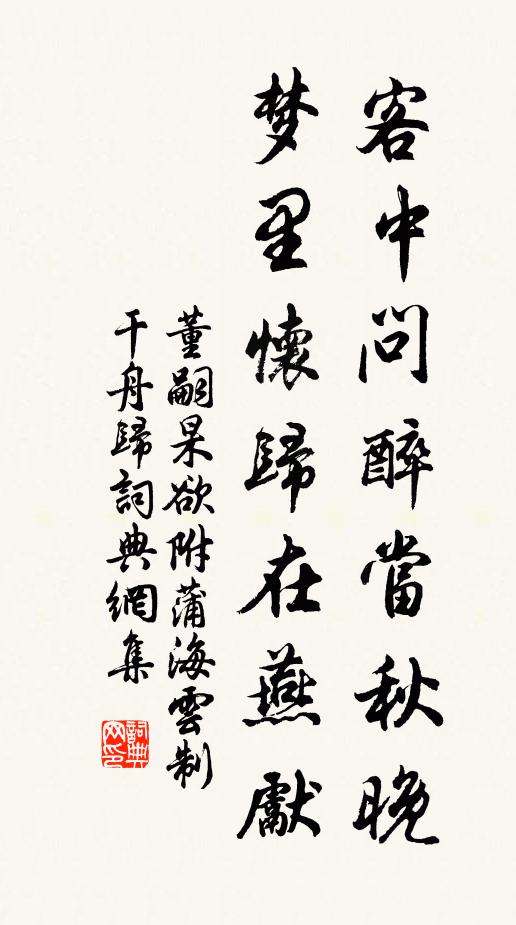 客中问醉當秋晚
梦里懷歸在燕獻
董嗣杲欲附蒲海雲制
干舟歸詞典網集
詞典
网印